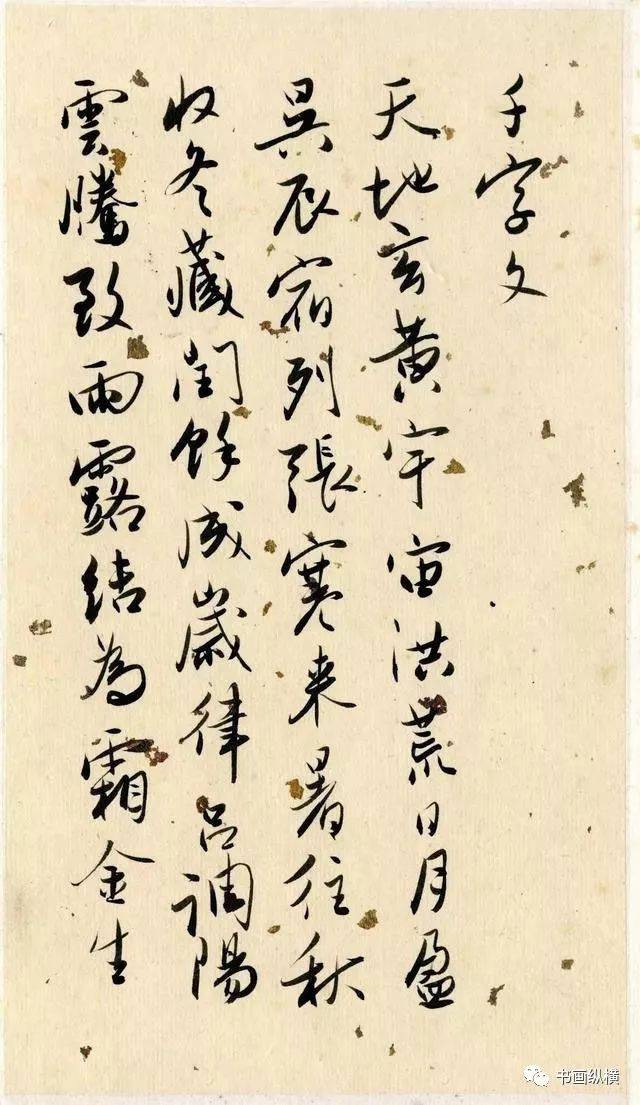 千字文
天地玄黄宇宙洪荒日月盈
昃辰宿列張寒来暑往秋
收冬藏閏餘成歲律吕調陽
雲騰致雨露結為霜金生
书画纵横